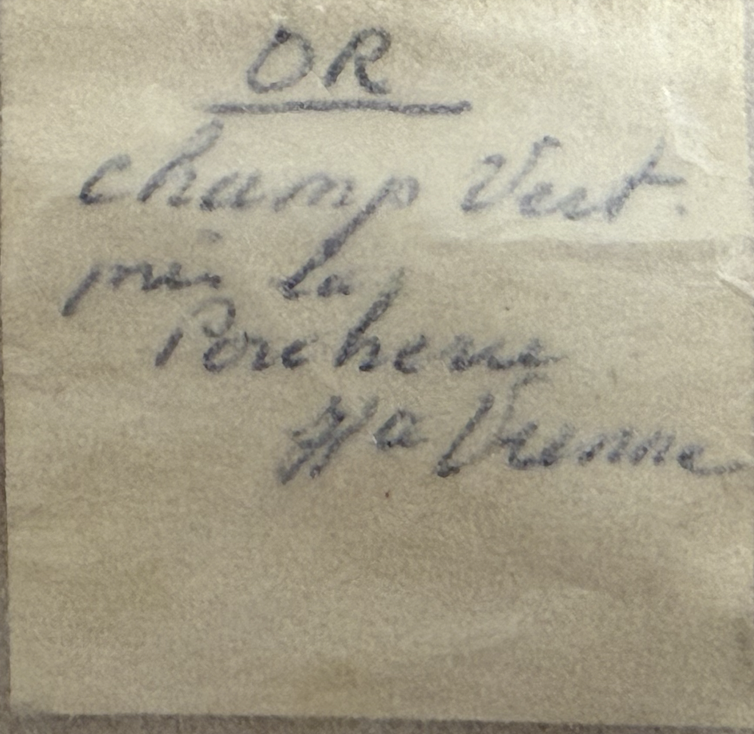 OR
champ Vert.
près la
Porcherie
Hte Vienne